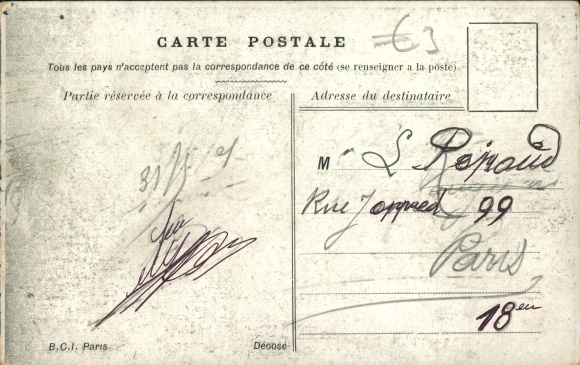 CARTE POSTALE
€ 3
Tous les pays n'acceptent pas la correspondance de ce côté (se renseigner a la poste)
Partie réservée à la correspondance
Adresse du destinataire
Mr L
Rue 99
Paris
18eu
B.C.I. Paris
Déposé